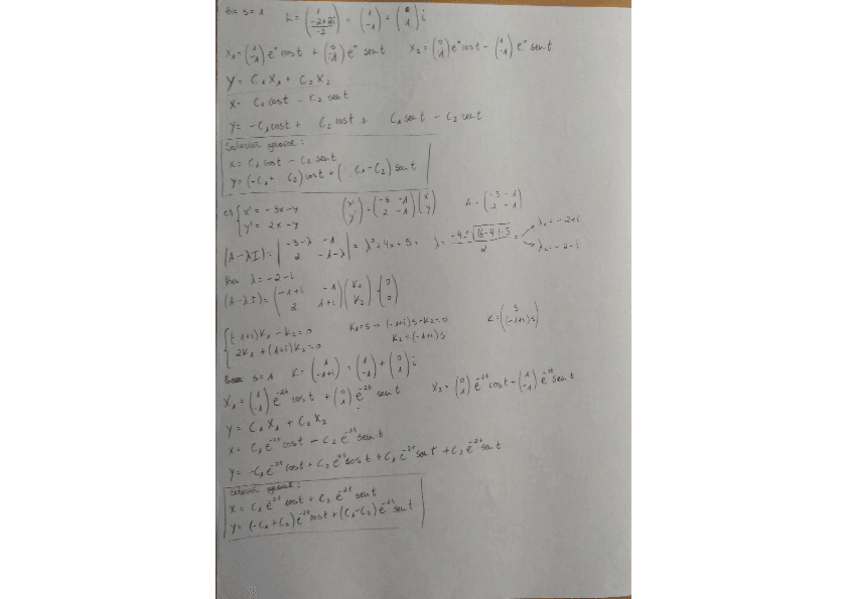 s=1 K = (1 / (-2+2i)/-2) = (1 / -1) + (0 / 1) i
X₁ = (1 / -1) e⁰ cos t + (0 / -1) e⁰ sen t X₂ = (0 / 1) e⁰ cos t - (1 / -1) e⁰ sen t
Y = C₁X₁ + C₂X₂
x = C₁ cos t - C₂ sen t
y = -C₁ cos t + C₂ cos t + C₁ sen t - C₂ sen t
Solución general:
x = C₁ cos t - C₂ sen t
y = (-C₁ + C₂) cos t + ( C₁ - C₂) sen t
c) { x' = -3x - y
y' = 2x - y (x' / y') = (-3 -1 / 2 -1) (x / y) A = (-3 -1 / 2 -1)
|A-λI| = |-3-λ -1 / 2 -1-λ| = λ²+4λ+5 = λ = (-4±√(16-4·1·5))/2 = λ₁ = -2+i
λ₂ = -2-i
λ = -2-i
(A-λI) = (-1+i -1 / 2 1+i) (K₁ / K₂) = (0 / 0)
{ (-1+i)K₁ - K₂ = 0 K₁ = s → (-1+i)s - K₂ = 0 K = (s / (-1+i)s)
2K₁ + (1+i)K₂ = 0 K₂ = (-1+i)s
s=1 K = (1 / -1+i) = (1 / -1) + (0 / 1) i
X₁ = (1 / -1) e⁻²ᵗ cos t + (0 / 1) e⁻²ᵗ sen t X₂ = (0 / 1) e⁻²ᵗ cos t - (1 / -1) e⁻²ᵗ sen t
Y = C₁X₁ + C₂X₂
x = C₁e⁻²ᵗ cos t - C₂e⁻²ᵗ sen t
y = -C₁e⁻²ᵗ cos t + C₂e⁻²ᵗ cos t + C₁e⁻²ᵗ sen t + C₂e⁻²ᵗ sen t
Solución general:
x = C₁e⁻²ᵗ cos t + C₂e⁻²ᵗ sen t
y = (-C₁+C₂)e⁻²ᵗ cos t + (C₁-C₂)e⁻²ᵗ sen t